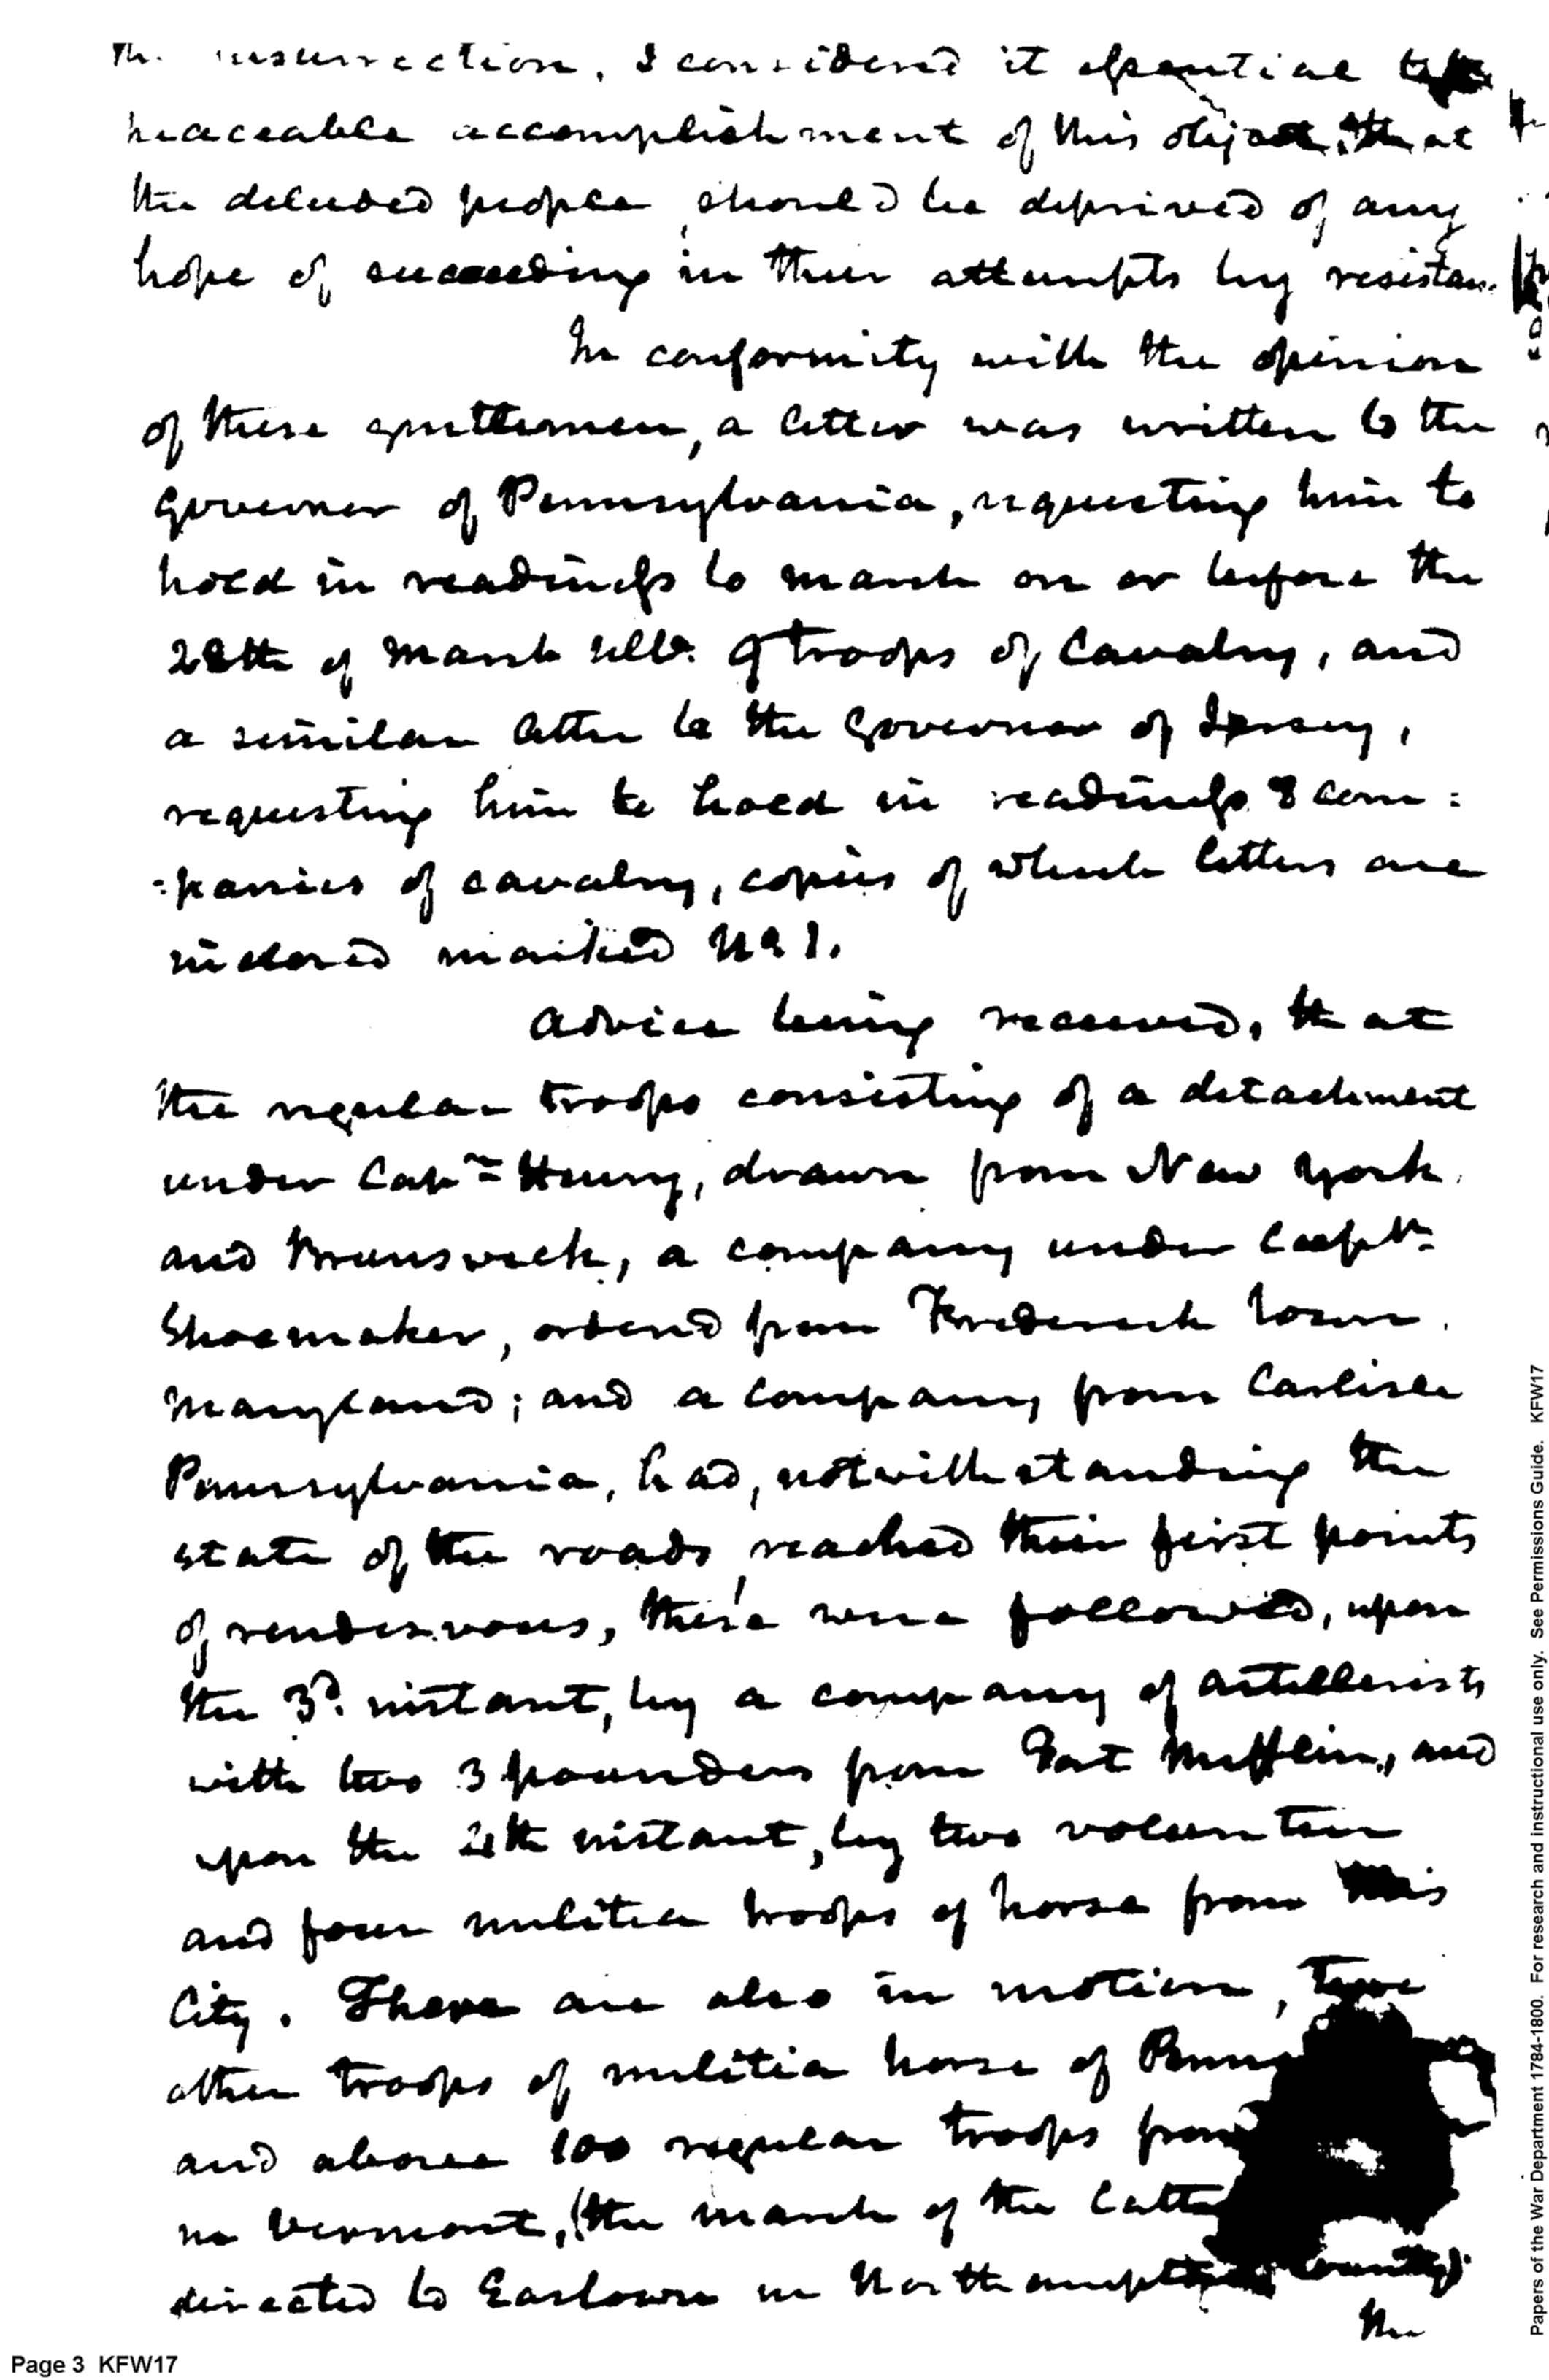 the insurrection, I considered it essential to
peaceable accomplishment of this object, that
the deluded people, should be deprived of any
hope of succeeding in their attempts by
In conformity with the opinion
of these gentlemen, a letter was written to the
Governor of Pennsylvania, requesting him to
hold in readiness to march on or before the
28th of March ulto. 9 troops of Cavalry, and
a similar letter to the Governor of Jersey,
requesting him to hold in readiness 8 com:
:panies of cavalry, copies of which letters are
inclosed marked No 1.
Advice being received, that
the regular troops consisting of a detachment
under Capn. Henry, drawn from New York
and Brunswick, a company under Captn.
Shoemaker, ordered from Frederick Town
Maryland; and a company from Carlisle
Pennsylvania, had, notwithstanding the
state of the roads, reached their first points
of rendezvous, these were followed, upon
the 3d. instant, by a company of artillerists
with two 3 pounders from Fort Mifflin, and
upon the 4th instant, by two volunteer
and four militia troops of horse from this
City. There are also in motion, two
other troops of militia horse of
and above 100 regular troops from
in Vermont, (the march of the
directed to Eastown in Northampton County)
the
Papers of the War Department 1784-1800. For research and instructional use only. See Permissions Guide. KFW17
Page 3 KFW17